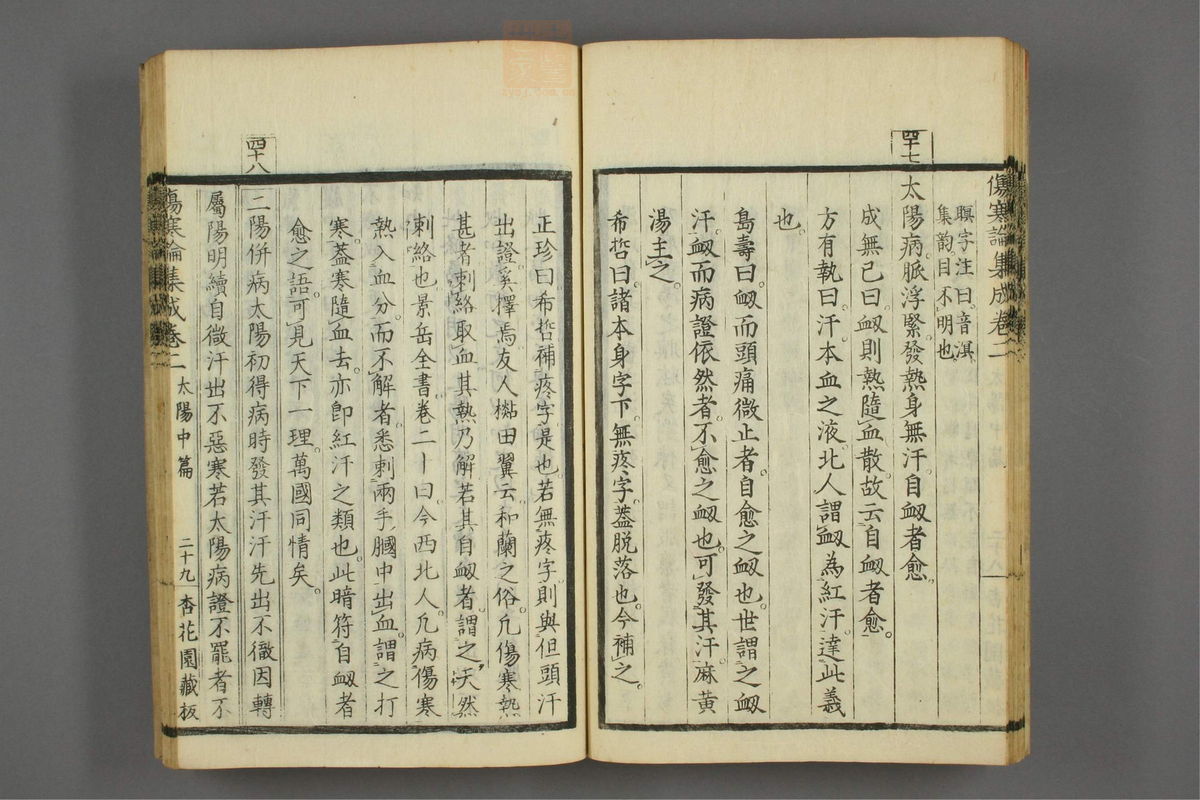 傷寒論集成卷二
瞑字注曰音溟
集韵目不明也
四十七
太陽病脈浮緊發熱身無汗自衂者愈
成無己曰衂則熱隨血散故云自衂者愈
方有執曰汗本血之液北人謂衂為紅汗達此義
也
島壽曰衂而頭痛微止者自愈之衂也世謂之衂
汗衂而病證依然者不愈之衂也可發其汗麻黄
湯主之
希哲曰諸本身字下無疼字蓋脱落也今補之
正珍曰希哲補疼字是也若無疼字則與但頭汗
出證奚擇焉友人樾田翼云和蘭之俗凡傷寒熱
甚者刺絡取血其熱乃解若其自衂者謂之天然
刺絡也景岳全書卷二十曰今西北人凡病傷寒
熱入血分而不解者悉刺兩手膕中出血謂之打
寒蓋寒隨血去亦卽紅汗之類也此暗符自衂者
愈之語可見天下一理萬國同情矣
四十八
二陽併病太陽初得病時發其汗汗先出不徹因轉
屬陽明續自微汗出不惡寒若太陽病證不罷者不
傷寒論集成卷二
太陽中篇
二十九
杏花園藏板